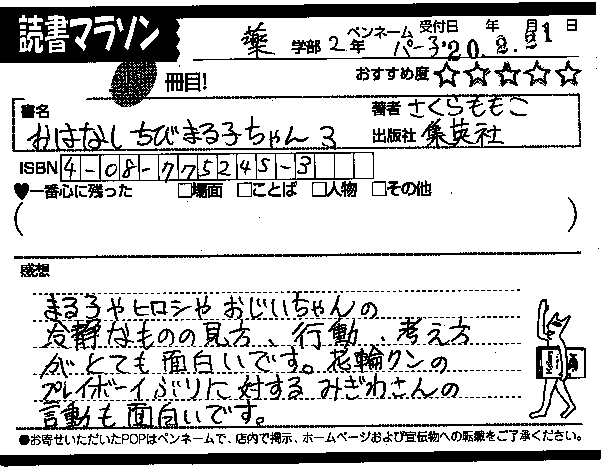 読書マラソン
薬 学部 2年 ペンネーム パー子 受付日 '20年 月 21日
冊目!
おすすめ度 ☆☆☆☆☆
書名 おはなしちびまる子ちゃん 3
著者 さくらももこ
出版社 集英社
ISBN 4-08-775245-3
♥一番心に残った □場面 □ことば □人物 □その他
( )
感想
まる子やヒロシやおじいちゃんの
冷静なものの見方、行動、考え方
がとても面白いです。花輪クンの
プレイボーイぶりに対するみぎわさんの
言動も面白いです。
●お寄せいただいたPOPはペンネームで、店内で掲示、ホームページおよび宣伝物への転載をご了承ください。